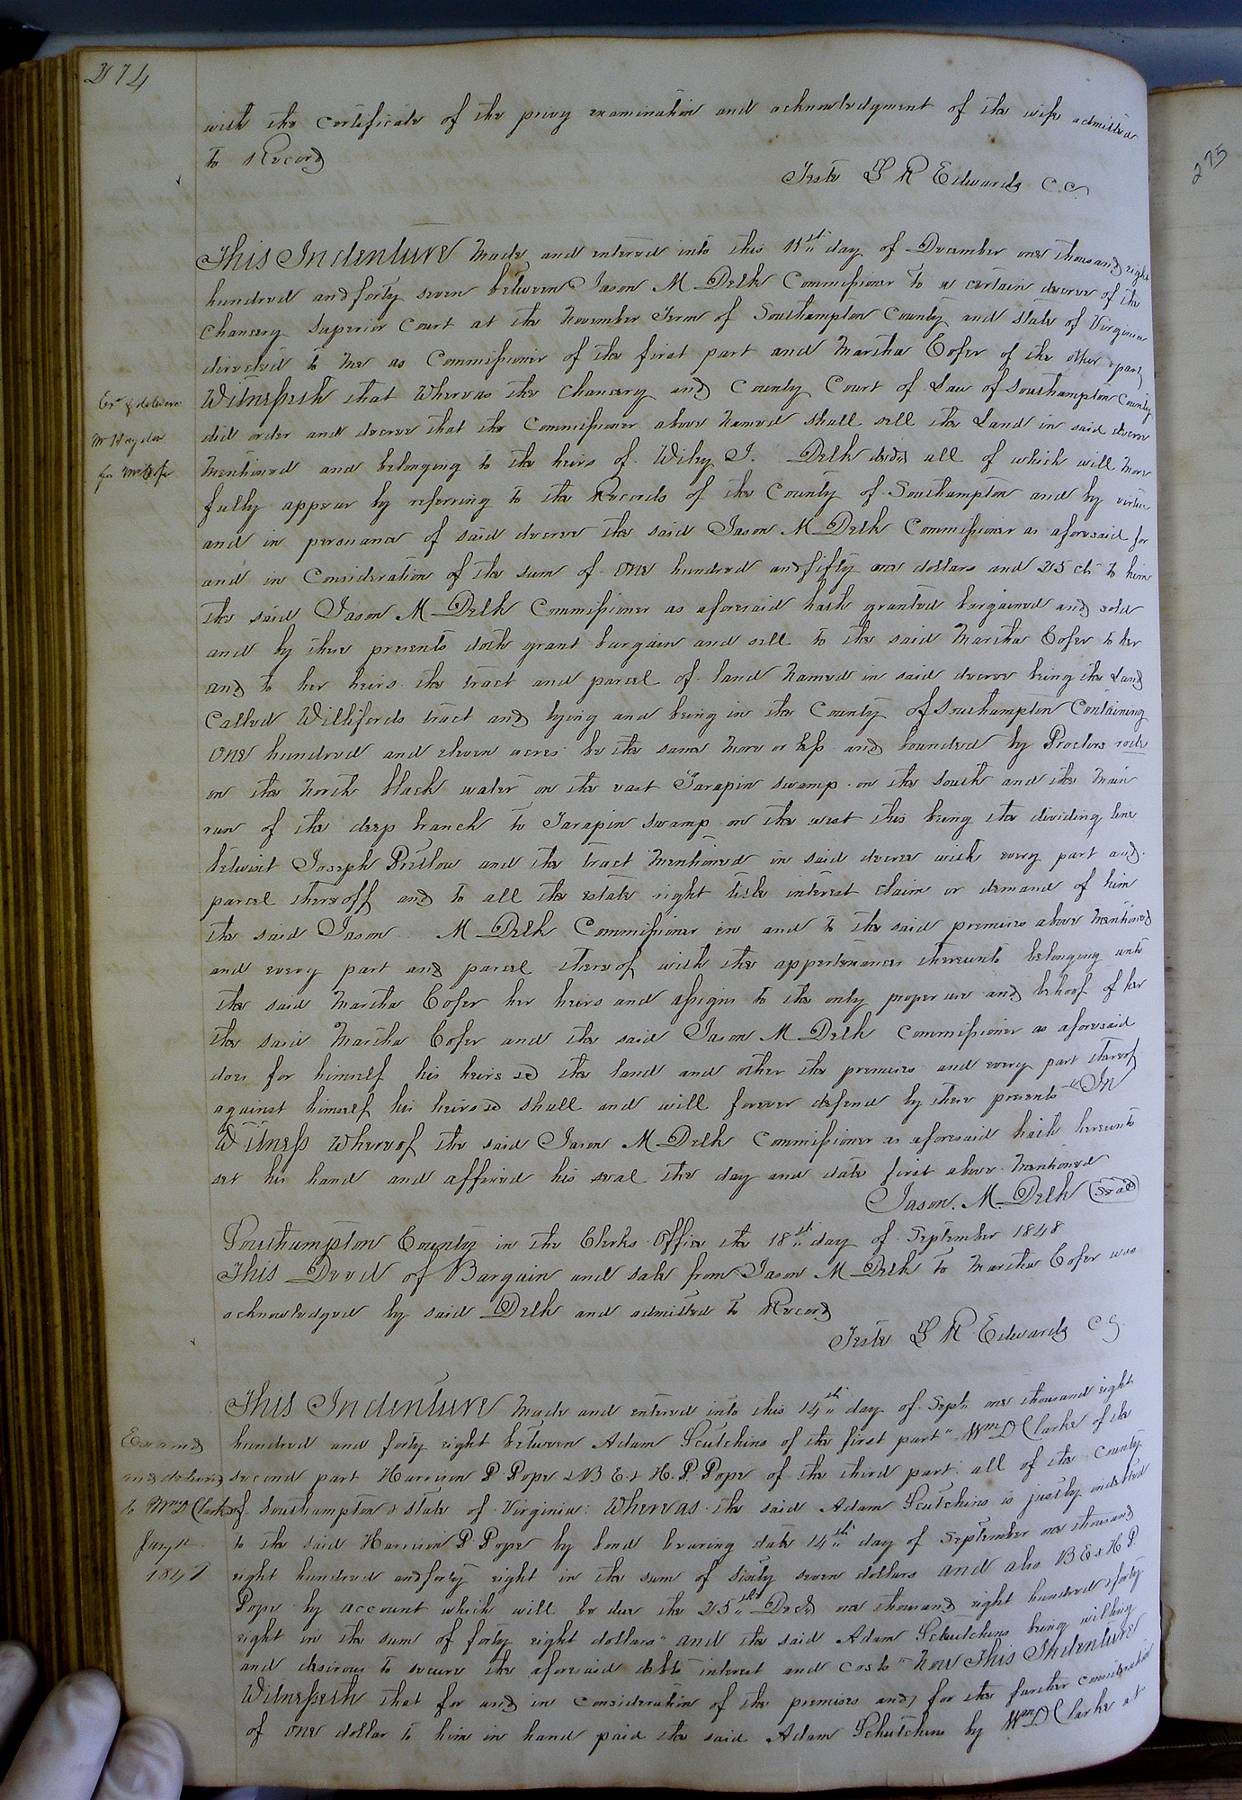 274
with the certificate of the privy examination and acknowledgment of the wife admitted
to Record
Teste L R Edwards C.C.
275
This Indenture Made and entered into this day of December one thousand eight
hundred and forty seven between Jason M Delk Commissioner to a certain decree of the
Chancery Superior Court at the November Term of Southampton County and State of Virginia
directed to me as Commissioner of the first part and Martha Cofer of the other part
Witnesseth that Whereas the Chancery and County Court of Law of Southampton County
did order and decree that the Commissioner above Named shall sell the Land in said decree
Mentioned and belonging to the heirs of Wiley J. Delk decd all of which will More
fully appear by referring to the Records of the County of Southampton and by virtue
and in persuance of said decree the said Jason M Delk Commissioner as aforesaid for
and in Consideration of the sum of one hundred and fifty one dollars and 25 cts to him
the said Jason M Delk Commissioner as aforesaid hath granted bargained and sold
and by these presents doth grant bargain and sell to the said Martha Cofer to her
and to her heirs the tract and parcel of land Named in said decree being the Land
Called Willifords tract and lying and being in the County of Southampton Containing
one hundred and eleven acres be the same More or less and bounded by Proctors
on the North black water on the east Tarapin swamp on the south and the Main
run of the deep branch to Tarapin swamp on the west this being the dividing line
betwixt Joseph and the tract Mentioned in said decree with every part and
parcel thereoff and to all the estate right title interest claim or demand of him
the said Jason M Delk Commissioner in and to the said premises above Mentioned
and every part and parcel thereof with the appertenances thereunto belonging unto
the said Martha Cofer her heirs and assigns to the only proper use and behoof of her
the said Martha Cofer and the said Jason M Delk Commissioner as aforesaid
does for himself his heirs &c the land and other the premises and every part thereof
against himself his heirs &c shall and will forever defend by these presents "In
Witness Whereof the said Jason M Delk Commissioner as aforesaid hath hereunto
set his hand and affixed his seal the day and date first above Mentioned
Jason. M. Delk (Seal)
Southampton County in the Clerks Office the 18th day of September 1848
This Deed of Bargain and sale from Jason M Delk to Martha Cofer was
acknowledged by said Delk and admitted to Record
Teste L R Edwards C.C.
This Indenture Made and entered into this 14th day of Sept. one thousand eight
hundred and forty eight between Adam Scutchins of the first part" Wm D Clarke of the
second part Harrison P Pope & B E & H. P Pope of the third part all of the County
of Southampton & state of Virginia: Whereas the said Adam Scutchins is justly indebted
to the said Harrison P Pope by bond bearing date 14th day of September one thousand
eight hundred and forty eight in the sum of sixty seven dollars and also B E & H P.
Pope by account which will be due the 25th Decr one thousand eight hundred & forty
eight in the sum of forty eight dollars" and the said Adam Schutchins being willing
and desirous to secure the aforesaid debts interest and costs "Now This Indenture
Witnesseth that for and in consideration of the premises and for the further consideration
of one dollar to him in hand paid the said Adam Schutchins by Wm D Clarke at
Exd & deliverd
for
Examd
and deliverd
to Wm D Clarke